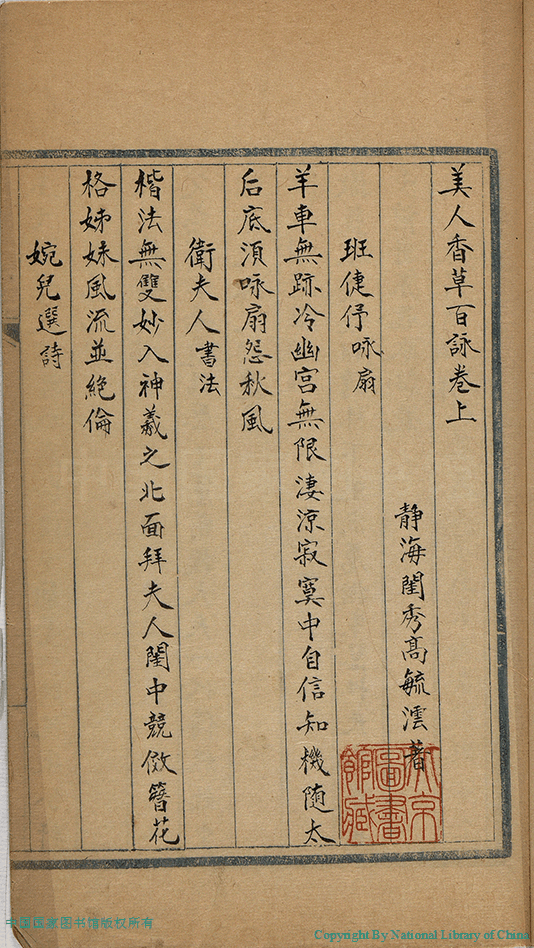 美人香草百詠卷上
静海閨秀高毓澐著
班倢伃咏扇
羊車無跡冷幽宫無限淒涼寂寞中自信知機随太
后底須咏扇怨秋風
衛夫人書法
楷法無雙妙入神羲之北面拜夫人閨中競倣簪花
格姊妹風流並絶倫
婉兒選詩
北京圖書館藏
中国国家图书馆版权所有
Copyright By National Library of China